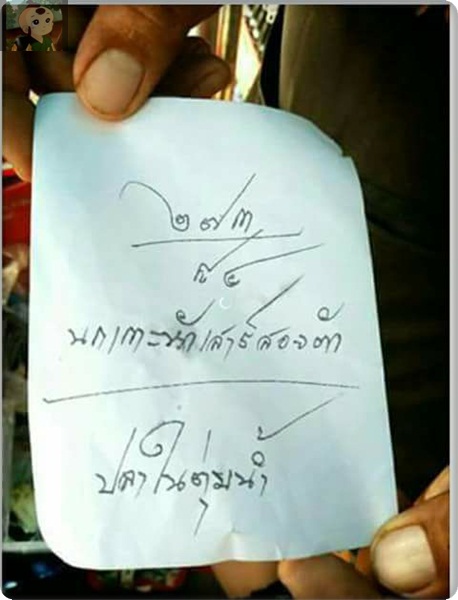 ๒๗๓
๕๔
นกเกาะหัวเสาร์สองตัว
ปลาในตุ่มน้ำ